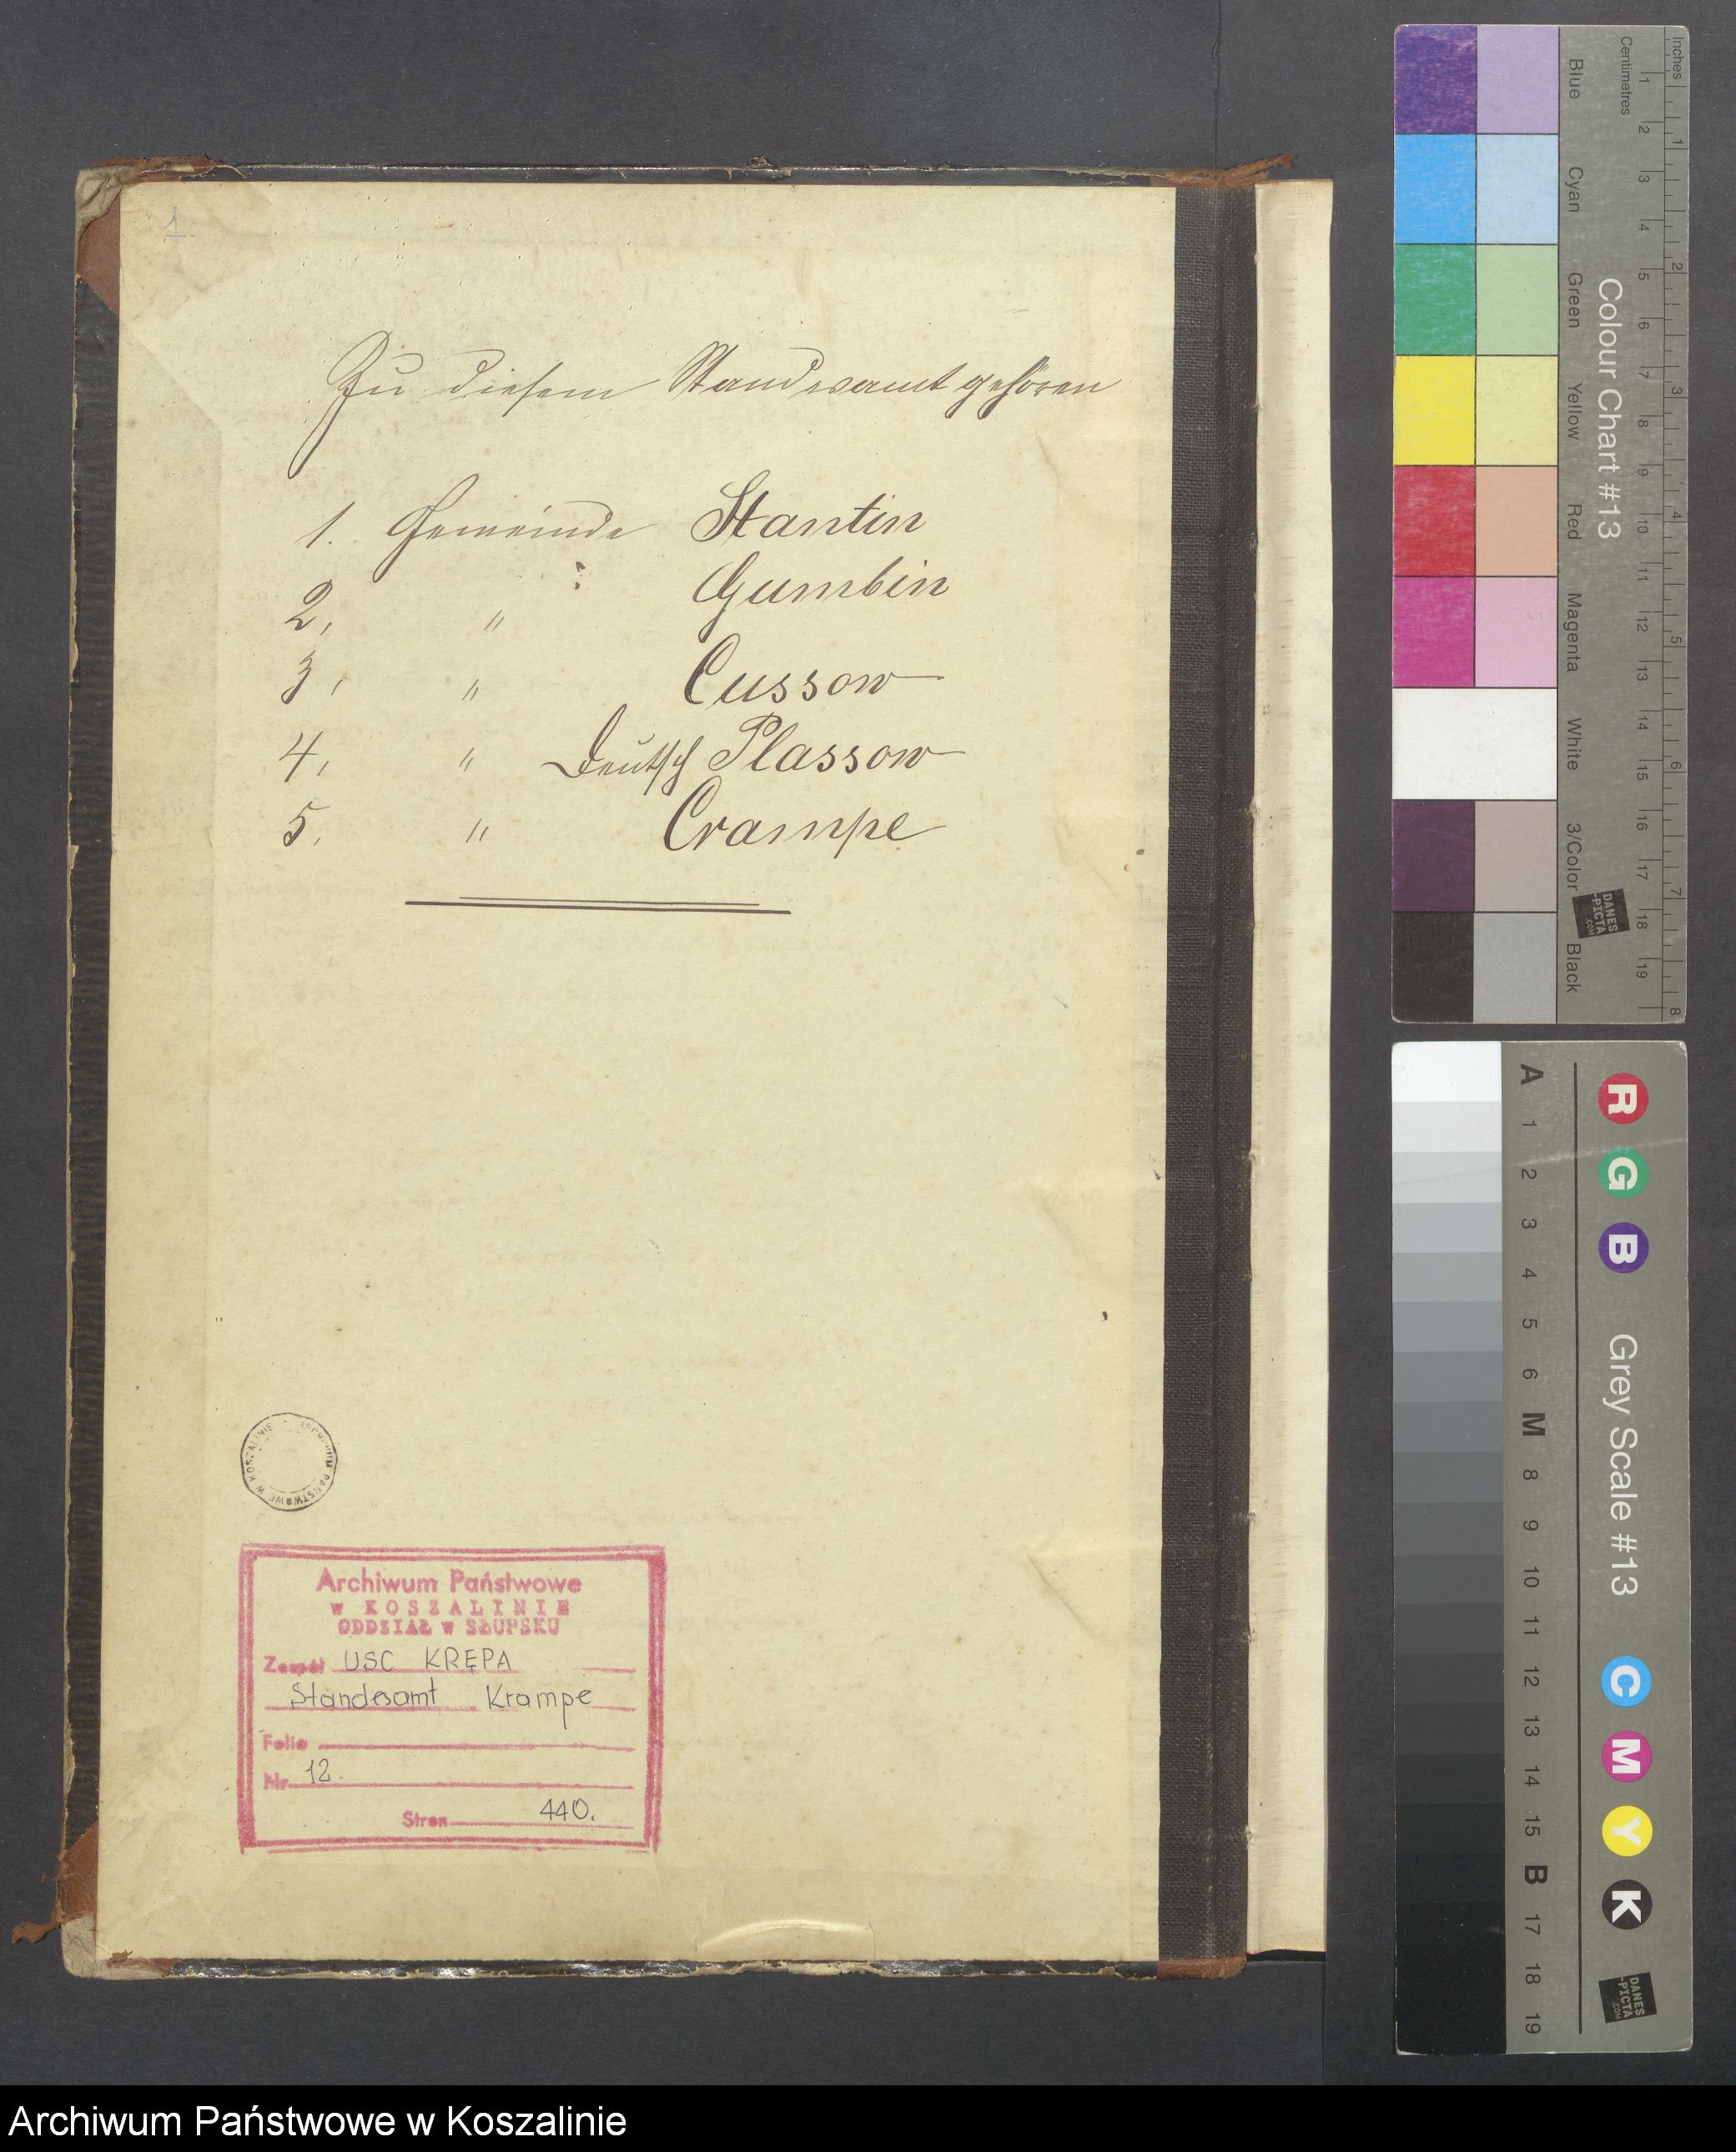 1
Zu diesem Standesamt gehören
1. Gemeinde Stantin
2, " Gumbin
3, " Cussow
4, " Deutsch Plassow
5. " Crampe
ARCHIWUM PAŃSTWOWE W KOSZALINIE
Archiwum Państwowe
w KOSZALINIE
ODDZIAŁ w SŁUPSKU
Zespół USC KRĘPA
Standesamt Krampe
Folio
Nr 12.
Stron 440.
Inches 1 2 3 4 5 6 7 8
Centimetres 1 2 3 4 5 6 7 8 9 10 11 12 13 14 15 16 17 18 19
Colour Chart #13
Blue Cyan Green Yellow Red Magenta White 3/Color Black
DANES
-PICTA
.COM
R G B Grey Scale #13 C M Y K
A 1 2 3 4 5 6 M 8 9 10 11 12 13 14 15 B 17 18 19
DANES
-PICTA
.COM
Archiwum Państwowe w Koszalinie